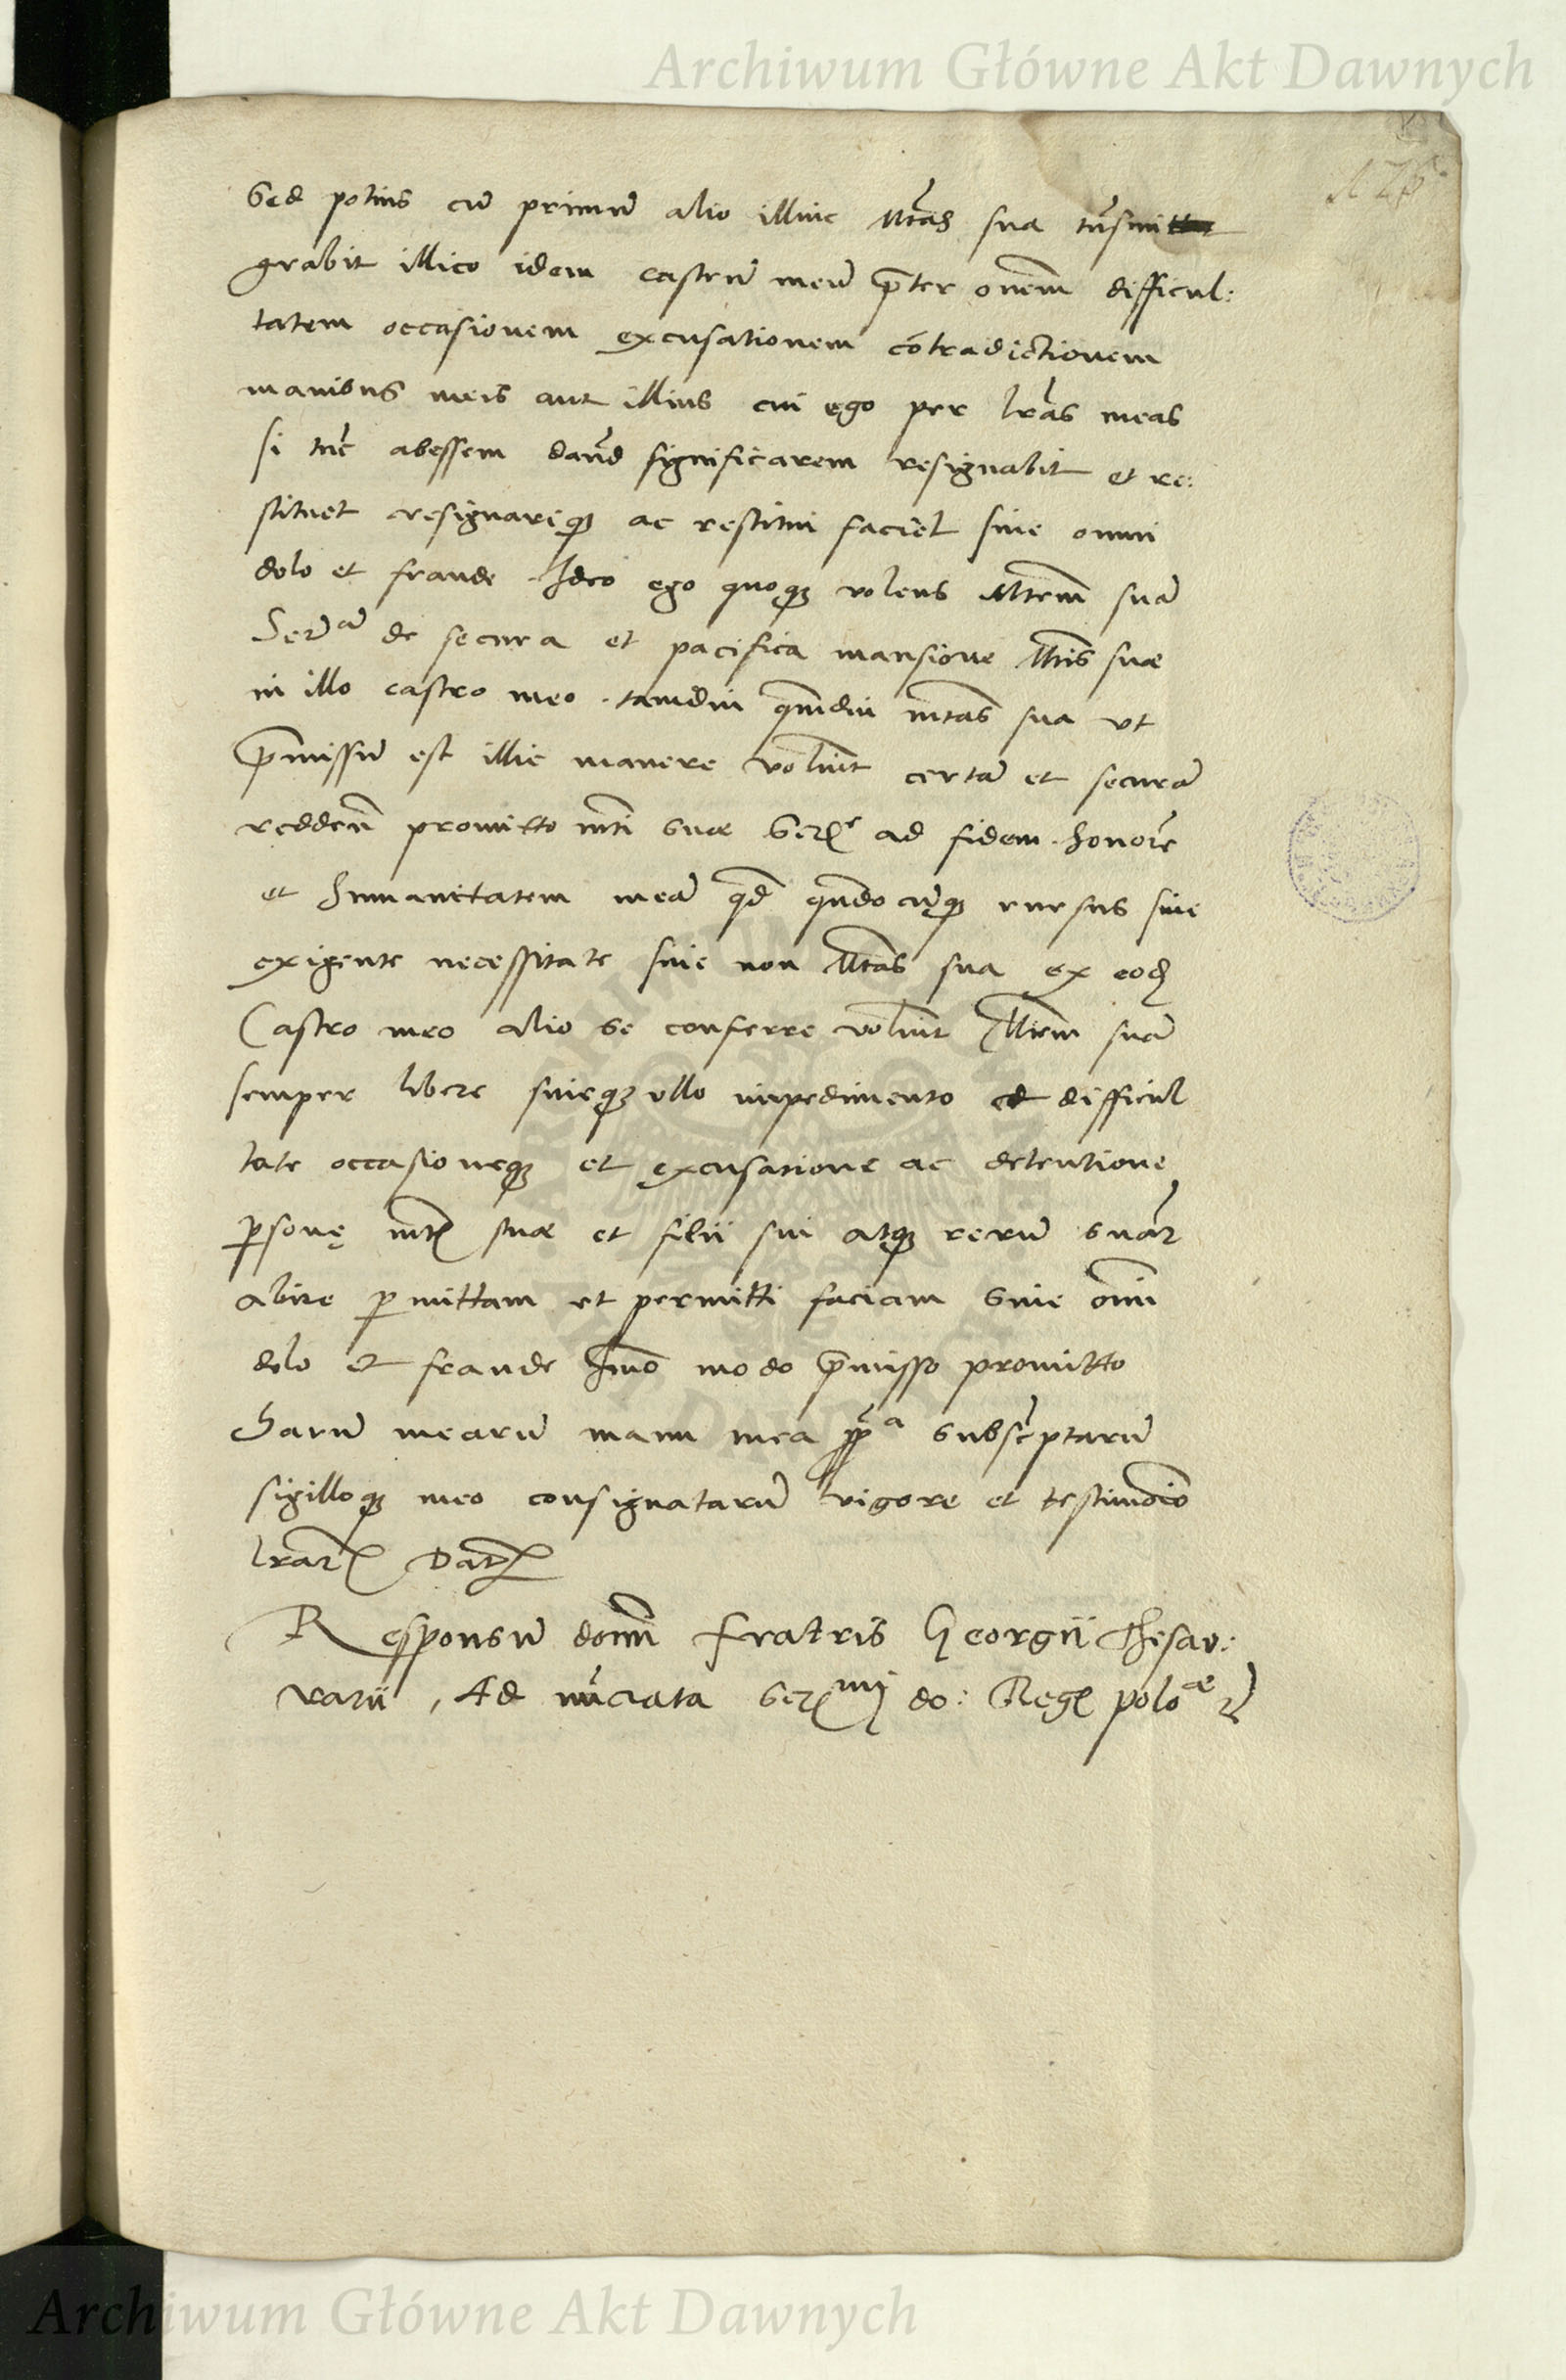 Archiwum Główne Akt Dawnych
126
Sed potius cū primū alio illinc Mtas sua trāsmi
grabit illico idem castrū meū p̄ter om̄em difficul:
tatem occasionem excusationem cōtradictionem
manibus meis aut illius cui ego per lr̄as meas
si tūc abessem dand̄ significarem resignabit et re:
stituet resignariq; ac restitui faciet sine omni
dolo et fraude. Ideo ego quoq; volens Mtem̄ suā
Ser̄ā de secura et pacifica mansione Mtis̄ suae
in illo castro meo. tamdiu q̄mdiu mtas̄ sua ut
p̄missū est illic manere volūit certā et securā
redder̄e promitto mtī suae Serᵉ ad fidem. honor̄e
et humanitatem meā qd̄ qn̄docūq; rursus siue
exigente necessitate siue non Mtas̄ sua ex eod̄
Castro meo alio se conferre volūit Mtem̄ suā
semper libere sineq; ullo impedimento et difficul
tate occasioneq; et excusatione ac detentione
p̱sonę mt̄ suae et filii sui atq; rerū suar̄
abire p̱mittam et permitti faciam sine om̄i
dolo et fraude Im̄o modo p̄misso promitto
harū mearū manu mea pp̄ᵃ subsc̄ptarū
sigilloq; meo consignatarū vigore et testimōio
lr̄ar̄ Dat̄
Responsū domi̅ Fratris Georgii Thesau:
rarii, Ad nūciata Serᵐⁱ do: Reḡ poloᵃᵉ
Archiwum Główne Akt Dawnych